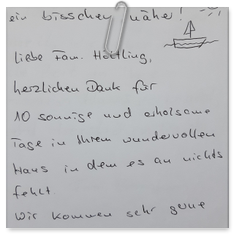 ein bisschen nähe!
liebe Fam. Höttling,
herzlichen Dank für
10 sonnige und erholsame
Tage in Ihrem wundervollen
Haus in dem es an nichts
fehlt
Wir kommen sehr gerne